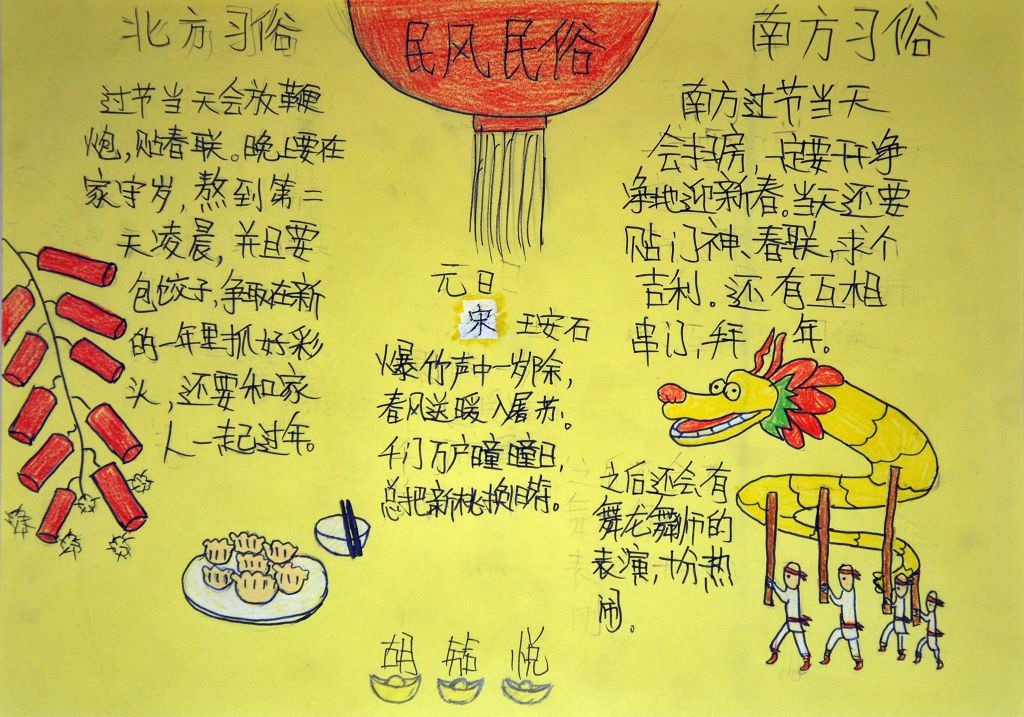 民风民俗
北方习俗
过节当天会放鞭
炮,贴春联。晚上要在
家守岁,熬到第二
天凌晨,并且要
包饺子,争取在新
的一年里抓好彩
头,还要和家
人一起过年。
元日
宋 王安石
爆竹声中一岁除,
春风送暖入屠苏。
千门万户瞳瞳日,
总把新桃换旧符。
南方习俗
南方过节当天
会扫房,一定要干干净
净地迎新春。当天还要
贴门神、春联,求个
吉利。还有互相
串门,拜年。
之后还会有
舞龙舞师的
表演,十分热
闹。
胡 悦